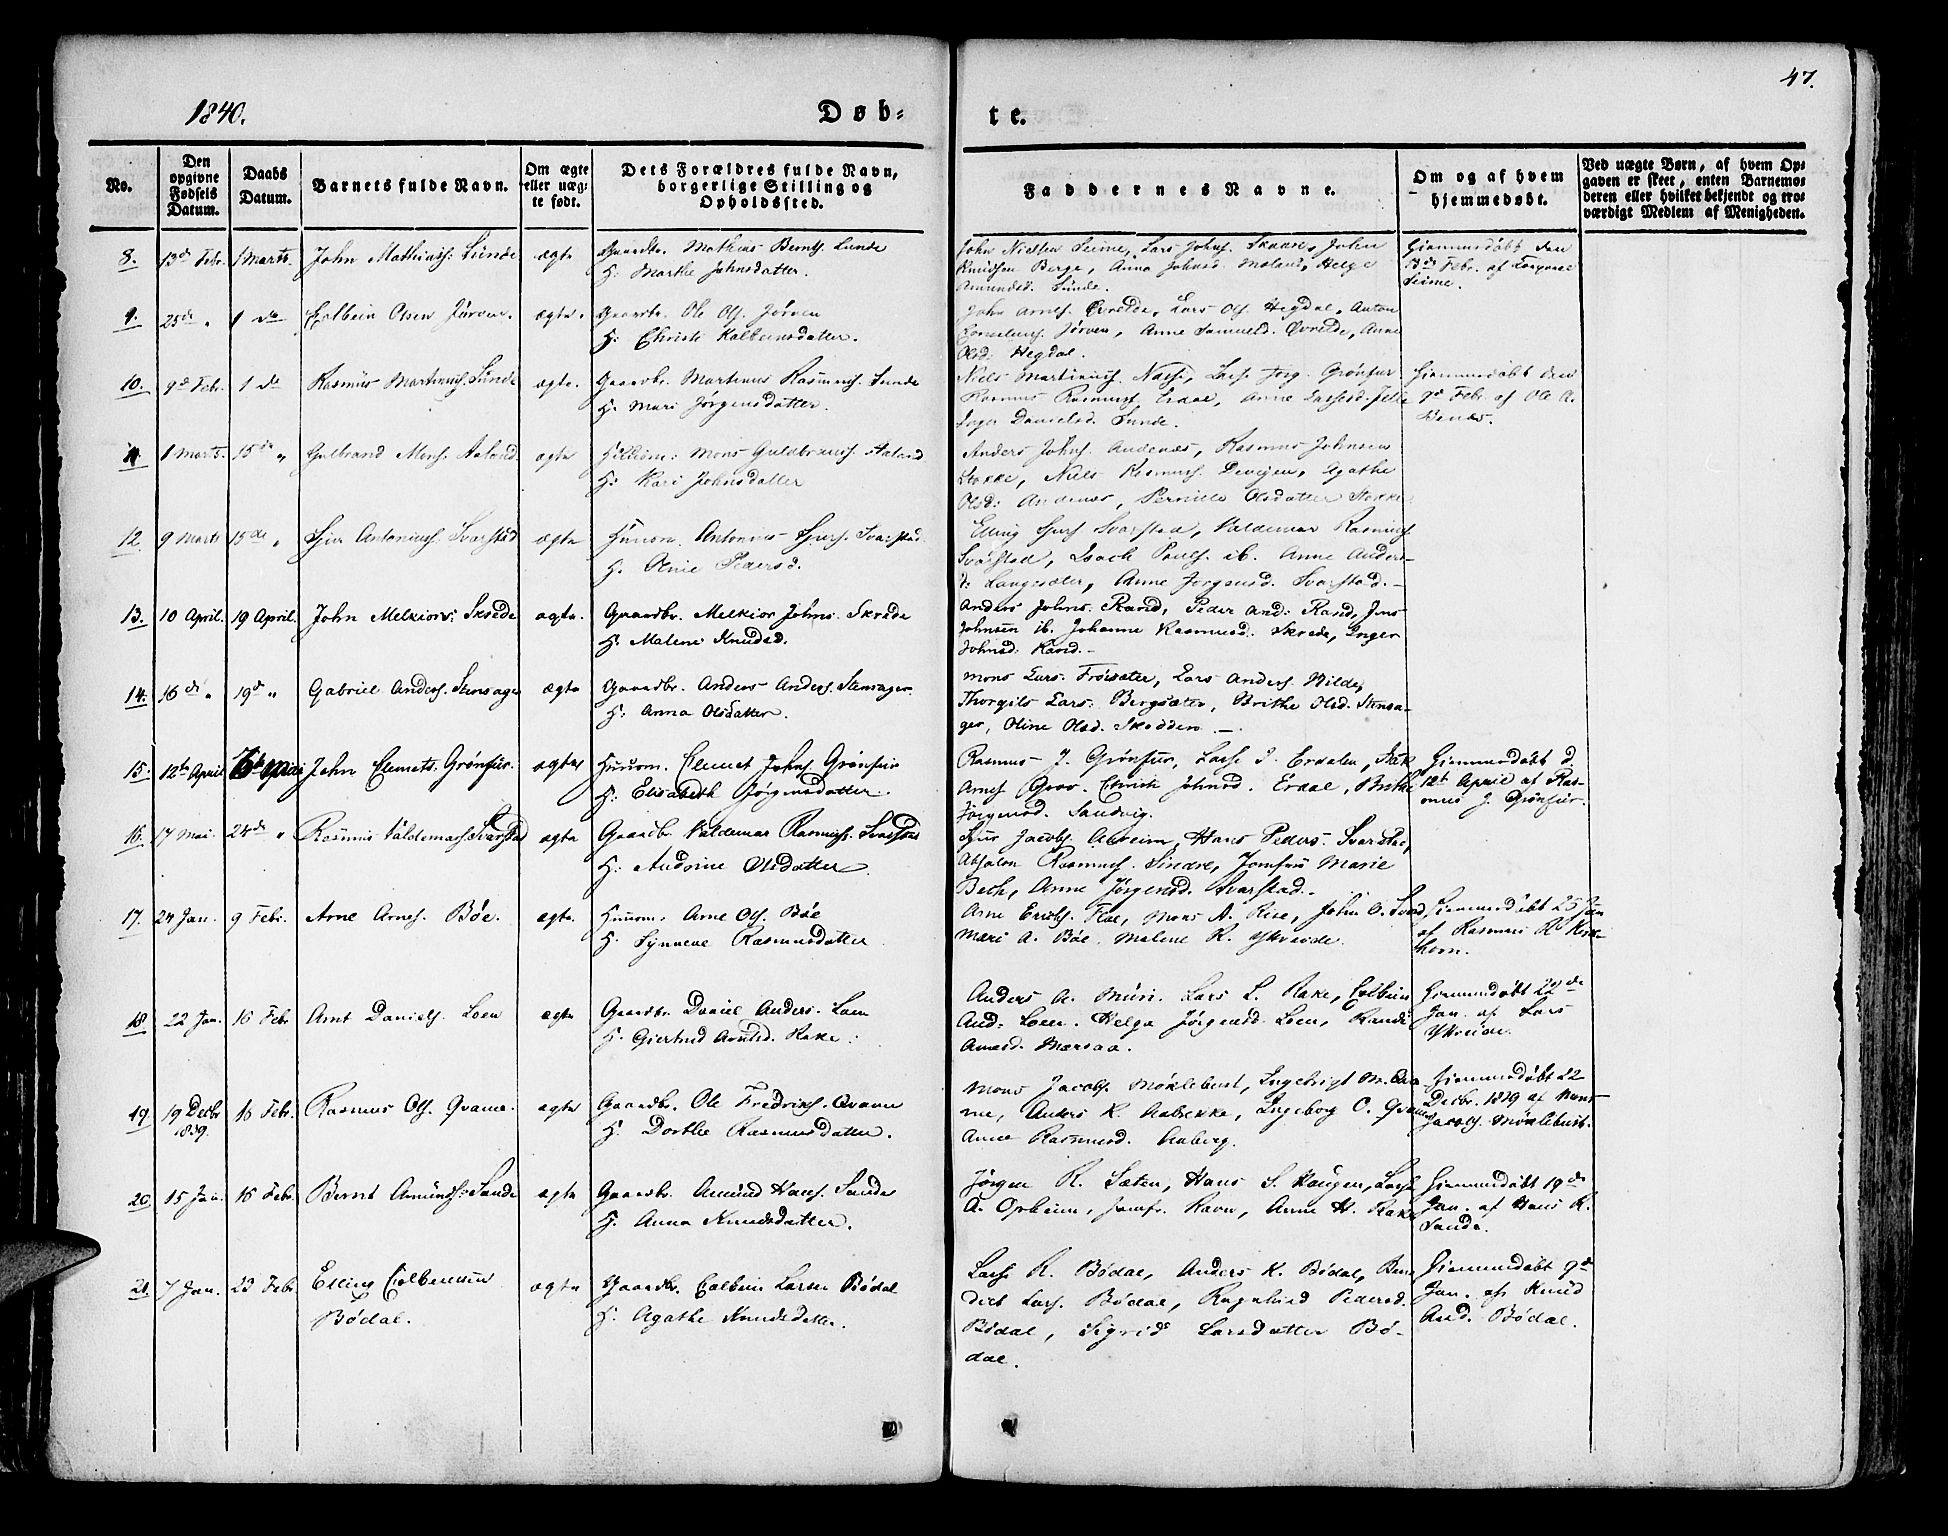 1840.
Døb-
te.
47.
No.
Den opgivne Fødsels Datum.
Daabs Datum.
Barnets fulde Navn.
Om ægte eller uæg-te født.
Dets Forældres fulde Navn, borgerlige Stilling og Opholdssted.
Faddernes Navne.
Om og af hvem hjemmedøbt.
Ved uægte Børn, af hvem Op-gaven er skeet, enten Barnemo-deren eller hvilket bekjendt og tro-værdigt Medlem af Menigheden.
8. 13de Febr. 1 Marts. John Mathiass: Sunde ægte Gaardbr. Mathias Bernts. Sunde
H: Marthe Johnsdatter.
John Nielsen Seime, Lars Johns. Skaare, John
Knudsen Berge, Anna Johnsd. Moland, Helge
Amundsd. Sunde.
Hjemmedøbt den
13de Febr. af
Seime.
9. 25de " 1 do Colbein Olsen Jörven. ægte. Gaardbr. Ole Ols. Jørven
H: Christi Kolbeinsdatter.
John Arnes. Øvrelde, Lars Ols. Hegdal, Anton
Corneliuss. Jørven, Anne Samuelsd. Øvrelde, Anne
Olsd: Hegdal.
10. 9de Febr. 1 do Rasmus Martinuss. Sunde ægte. Gaardbr. Martinus Rasmuss. Sunde
H: Mari Jørgensdatter.
Niels Martinuss. Nasse, Lasse Jørg. Grønfur
Rasmus Rasmuss. Erdal, Anne Lassesd.
Inger Danielsd. Sunde.
Hjemmedøbt den
9de Febr. af Ole A.
11. 1 Marts. 15de " Gulbrand Mons. Aaland ægte Mons Guldbrands. Aaland
H: Kari Johnsdatter
Anders Johns. Andenæs, Rasmus Johnsen
Stokke, Niels Rasmuss. Agathe
Olsd: Andenæs, Pernille Olsdatter Stokke
12. 9 Marts 15de " Sjur Antoniuss. Svarstad ægte Huusm. Antonius Sjurs. Svarstad.
H. Olnie Pedersd.
Elling Sjurs. Svarstad, Valdemar Rasmuss.
Svarstad, Isach Pauls. ib. Anne Anders-
d: Langesæter, Anne Jørgensd. Svarstad. -
13. 10 April. 19 April. John Melkiors: Skrede ægte. Gaardbr. Melkior Johns. Skrede
H: Malene Knudsd.
Anders Johns. Rand, Peder And: Rand, Jens
Johnsen ib. Johanne Rasmusd. Skrede, Inger
Johnsd. Rand. -
14. 16de " 19de " Gabriel Anders. Stensager ægte Gaardbr. Anders Anders. Stensager
H: Anna Olsdatter.
Mons Lars. Frøisæter, Lars Anders. Hilde,
Thorgils Lars: Bergsæter, Brithe Olsd. Stensa-
ger, Oline Olsd. Skodden -
15. 12te April Mai John Clemets. Grønfur. ægte Huusm. Clemet Johns. Grønfur
H: Elisabeth Jørgensdatter.
Rasmus J. Grønfur, Lasse J. Erdalen, Isak
Arnes Grov. Christi Johnsd. Erdal, Brithe
Jørgensd. Sandvig.
Hjemmedøbt d.
12te April af Ras-
mus J. Grønfur.
16. 17 Mai. 24de " Rasmus Valdemars. Svarstad ægte Gaardbr Valdemar Rasmuss. Svarstad
H: Andrine Olsdatter.
Sjur Jacobs. Aaheim, Hans Peders. Svarstad,
Absalon Rasmuss. Sindre, Jomfru Marie
Bech, Anne Jørgensd. Svarstad.
17. 24 Jan. 9 Febr. Arne Arnes. Bøe. ægte. Huusm. Arne Ols. Bøe
H. Synneve Rasmusdatter
Arne Erichs. Floe, Mons A. Rise, John O.
Mari A. Bøe. Malene R. Yttreeide.
Hjemmedøbt 25 Jan
af Rasmus R. Kirk-
horn.
18 22 Jan. 16 Febr. Arnt Daniels. Loen ægte Gaardbr. Daniel Anders. Loen
H. Giertrud Arntsd. Rake.
Anders A. Muri. Lars L. Rake, Colbein
And: Loen. Helga Jørgensd. Loen, Randi
Arnesd. Marsaa.
Hjemmedøbt 22de
Jan. af Lars
Ytreeide.
19 19 Decbr 1839. 16 Febr. Rasmus Ols. Qvame. ægte Gaardbr. Ole Fredriks. Qvame
H. Dorthe Rasmusdatter.
Mons Jacobs. Møklebust, Ingebrigt M. Qva-
me, Anders R. Aabrekke, Ingeborg O. Qvame
Anne Rasmusd. Aaberg.
Hjemmedøbt 22
Decbr. 1839 af Mons
Jacobs. Møklebust.
20. 15 Jan. 16 Febr. Bernt Amunds: Sande ægte Gaardbr. Amund Hans. Sande
H. Anna Knudsdatter.
Jørgen R. Sæten, Hans S. Haugen, Lasse
A. Opheim, Jomfr. Ravn, Anne H. Rake
Hjemmedøbt 19de
Jan. af Hans R.
Sande.
21. 7 Jan. 23 Febr. Elling Colbeinsen
Bødal. ægte Gaardbr. Colbein Larsen Bødal
H. Agathe Knudsdatter.
Lasse R. Bødal, Anders K. Bødal, Ben-
dict Lars. Bødal, Ragnhild Pedersd.
Bødal, Sigrid Larsdatter Bø-
dal.
Hjemmedøbt 9de
Jan. af Knud
And. Bødal.